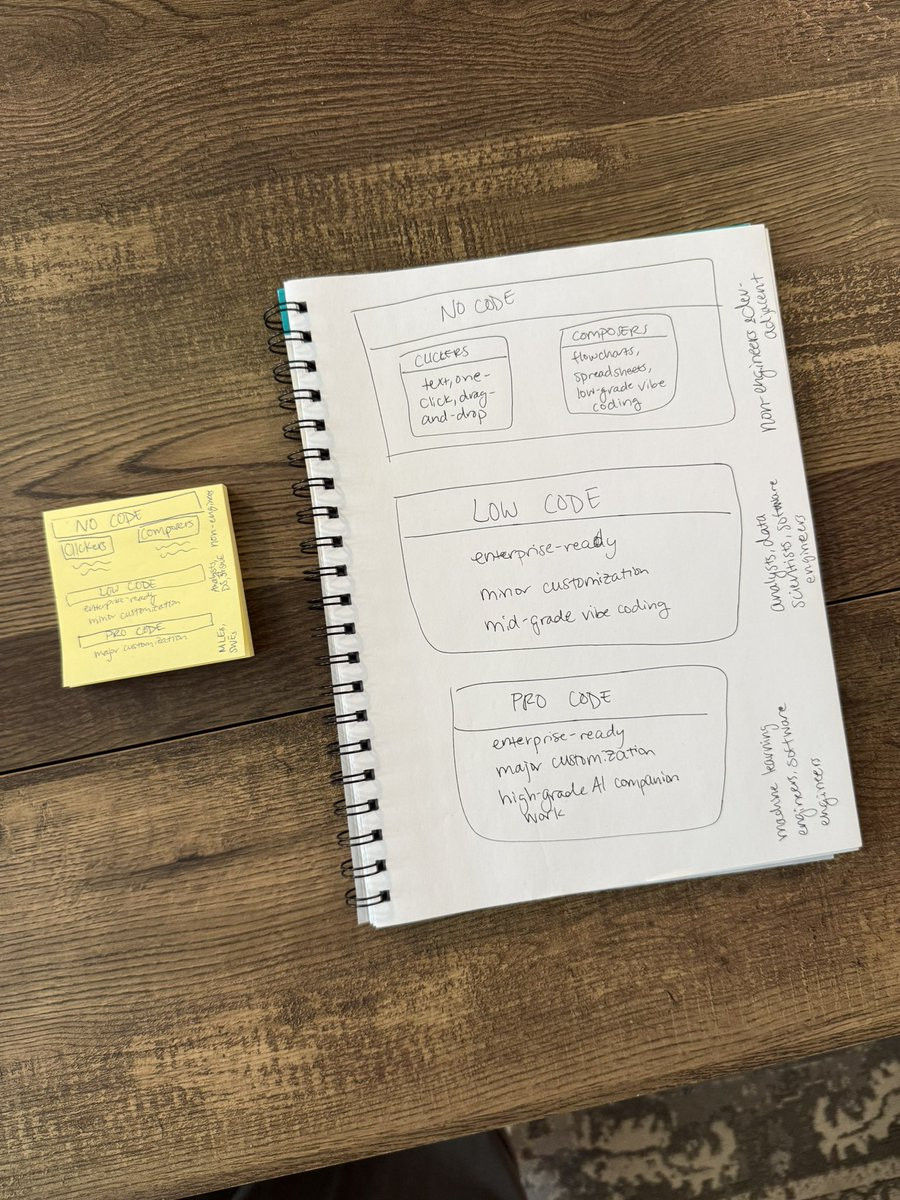 NO CODE
CLICKERS
text, one-
click, drag-
and-drop
COMPOSERS
flowcharts,
spreadsheets,
low-grade vibe
coding
non-engineers & dev-
adjacent
LOW CODE
enterprise-ready
minor customization
mid-grade vibe coding
analysts, data
scientists, software
engineers
PRO CODE
enterprise-ready
major customization
high-grade AI companion
work
machine learning
engineers, software
engineers
NO CODE
Clickers
Composers
LOW CODE
enterprise-ready
minor customization
Analysts,
PRO CODE
major customization
MLEs,
SWEs